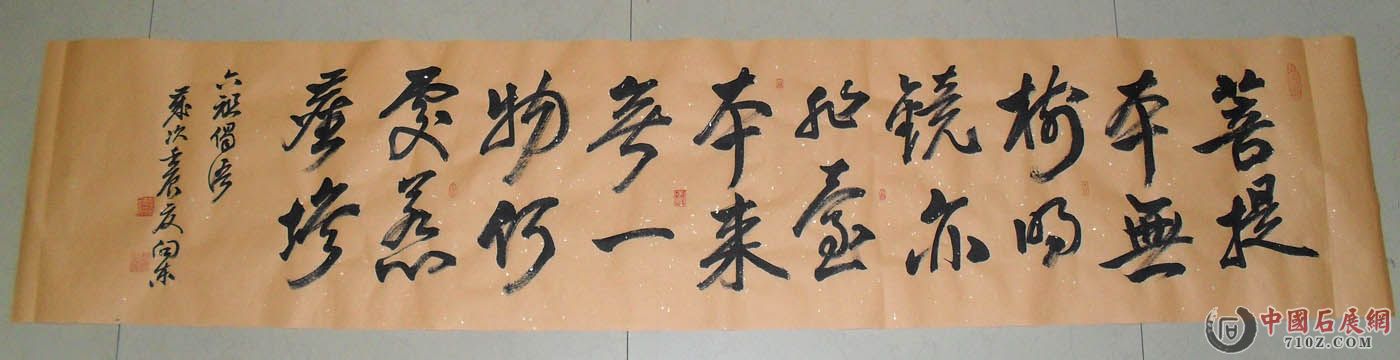 菩提
本無
樹明
鏡亦
非臺
本来
無一
物何
處惹
塵埃
六祖偈語
歲次辰夏向东
中國石展網
710Z.COM